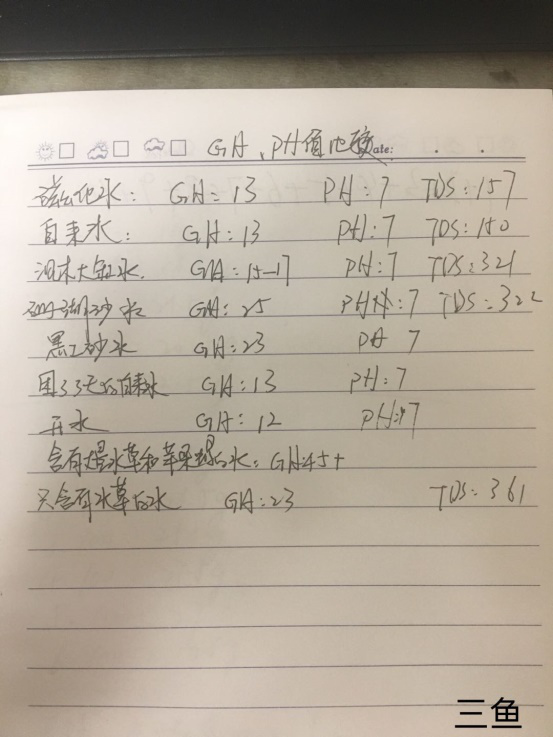 GH、PH值比较 ate:
磁化水: GH: 13 PH: 7 TDS: 157
自来水: GH: 13 PH: 7 TDS: 150
大缸水. GH: 15-17 PH: 7 TDS: 321
砂水 GH: 25 PH: 7 TDS: 322
黑土砂水 GH: 23 PH 7
困了3天的自来水 GH: 13 PH: 7
开水 GH: 12 PH: 7
含有大量水草和苹果螺的水: GH: 45+
只含有水草的水 GH: 23 TDS: 361
三鱼